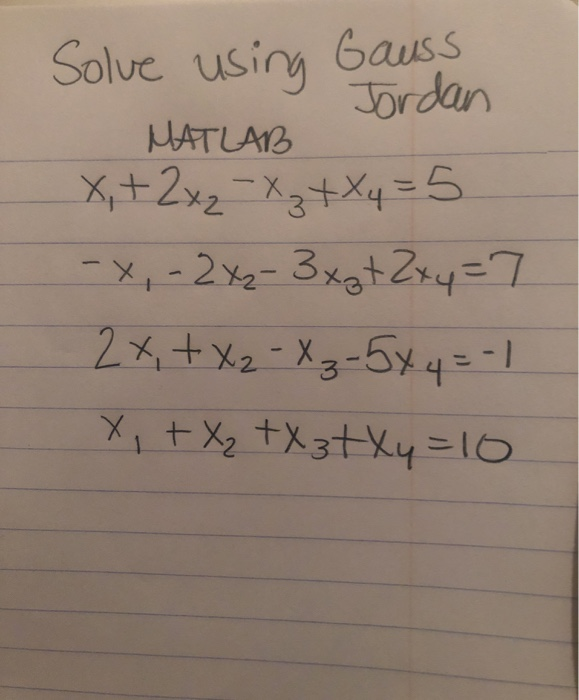 Solve using Gauss
Jordan
MATLAB
x₁+2x₂-x₃+x₄=5
-x₁-2x₂-3x₃+2x₄=7
2x₁+x₂-x₃-5x₄=-1
x₁+x₂+x₃+x₄=10